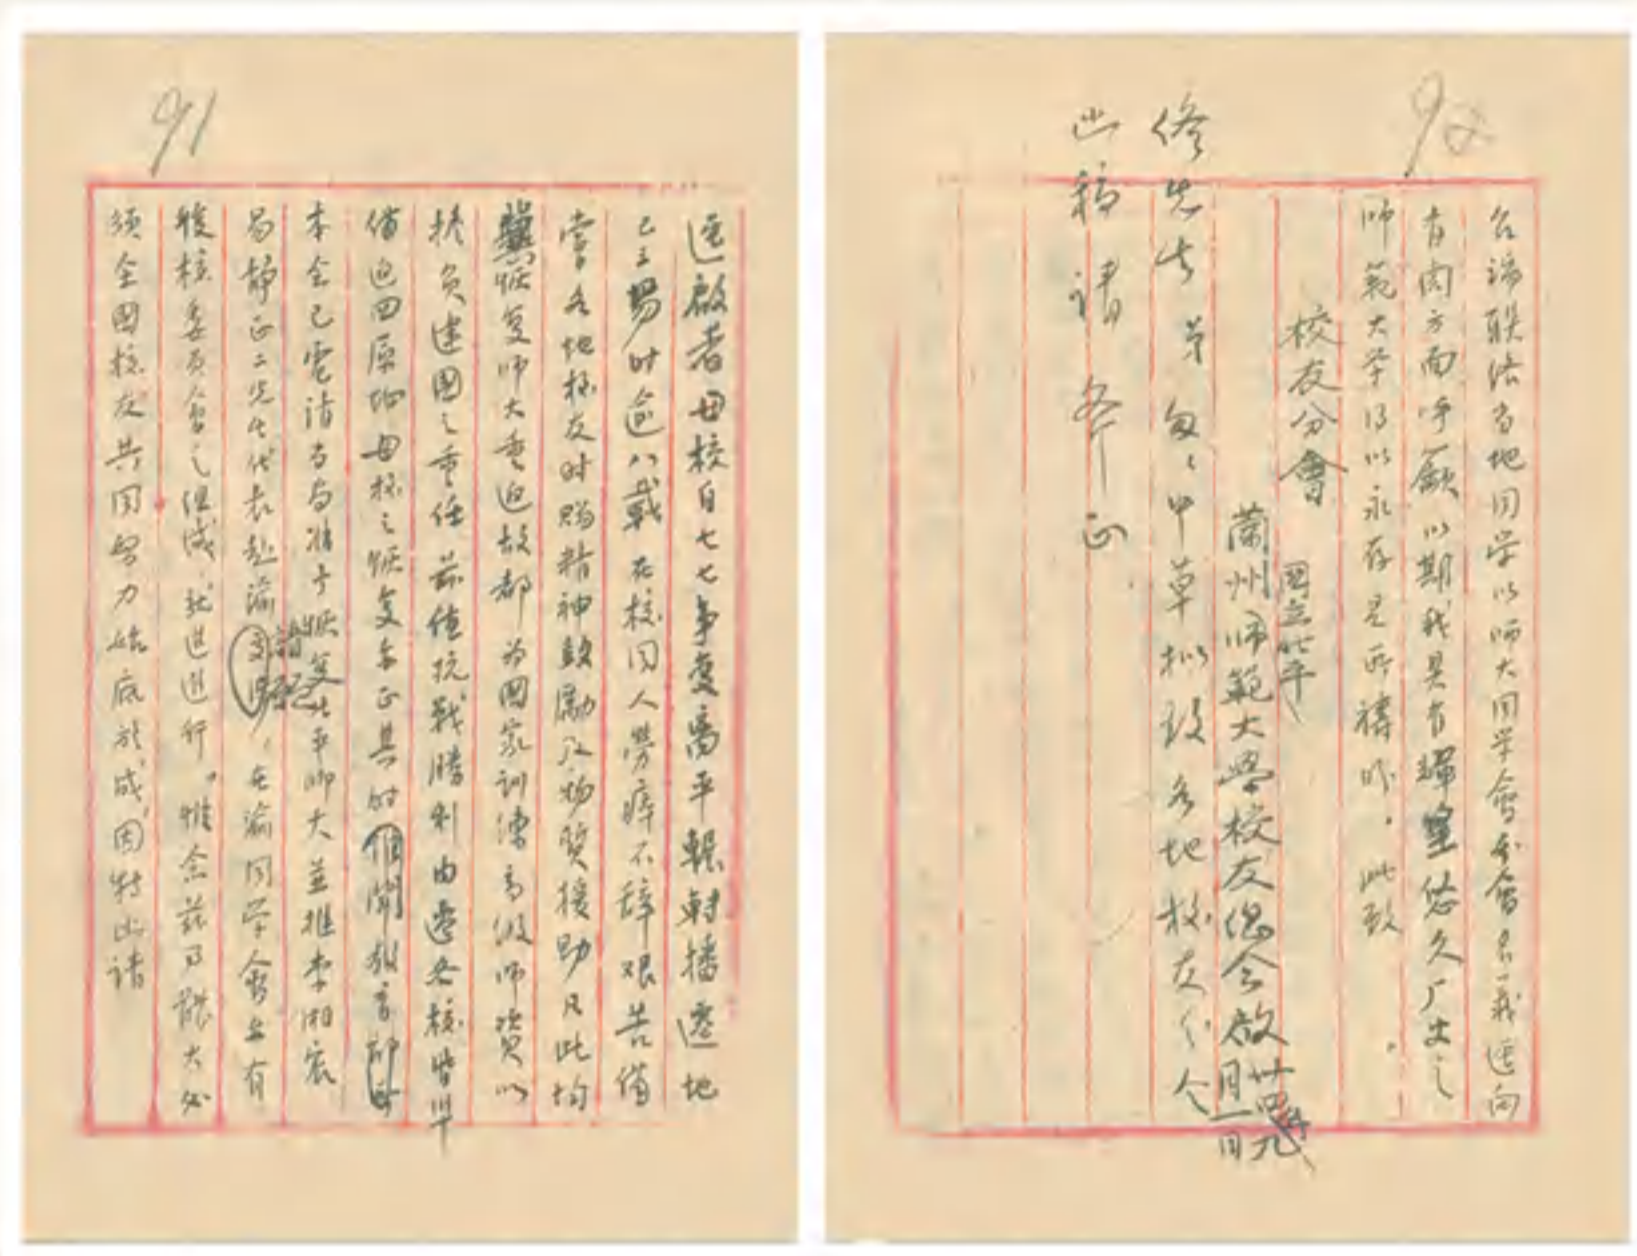 91
迳啟者母校自七七事变离平輾轉播遷地
已三易时逾八載在校同人劳瘁不辞艰苦备
尝各地校友时赐精神鼓励及物质援助凡此均
冀恢复师大重迴故都为国家训练高级师资以
担负建国之重任兹值抗战胜利内迁各校皆準
备迴四原址母校之恢复亦正其时
本会已電请当局准予恢复北平师大並推李湘宸
易静正二先生代表赴渝 请愿 在渝同学会亦有
複校委员会之组成 就近进行 惟念兹事體大必
须全国校友共同努力始底於成 因特函请
92
台端联洛当地同学以师大同学会分会名义迳向
有関方面呼籲以期我具有輝煌悠久历史之
师範大学得以永存是所禱盼 此致
校友分會
國立北平
蘭州师範大學校友總会啟
廿四年九月一日
修先生 弟匆匆中草拟致各地校友分会
函稿请斧正